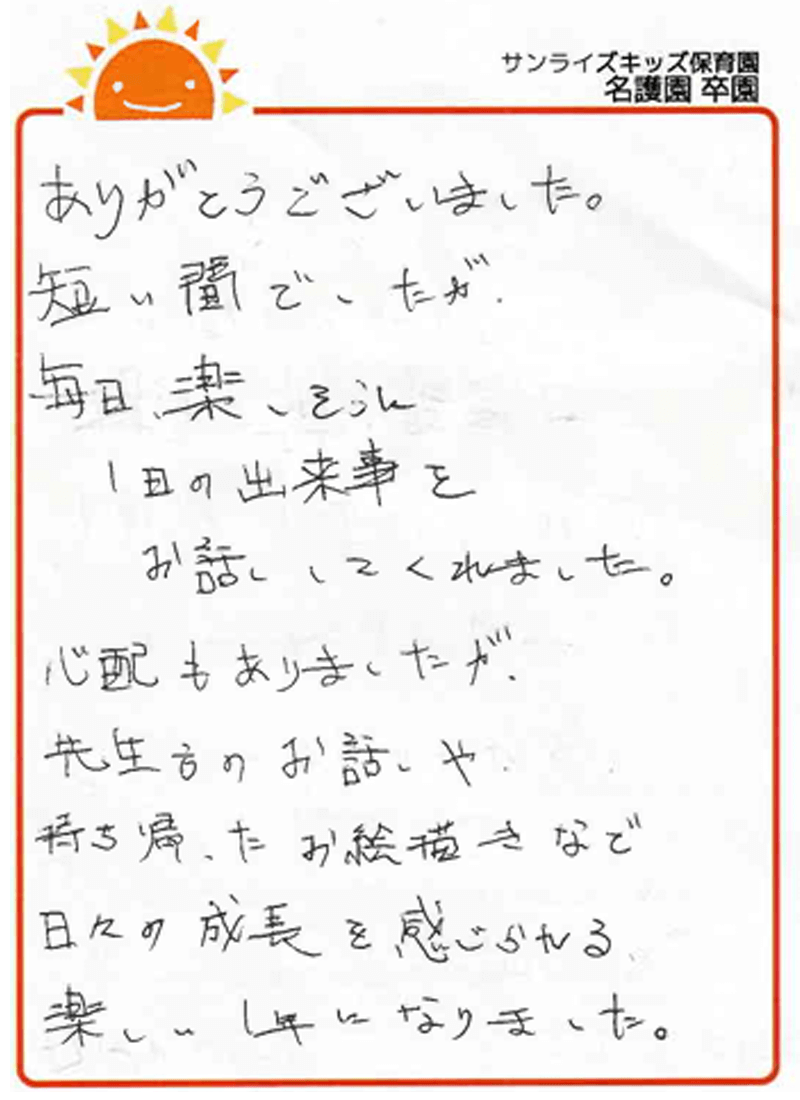 サンライズキッズ保育園
名護園 卒園
ありがとうございました。
短い間でしたが、
毎日、楽しそうに
1日の出来事を
お話ししてくれました。
心配もありましたが、
先生方のお話しや、
持ち帰ったお絵描きなで
日々の成長を感じられる
楽しい1年になりました。